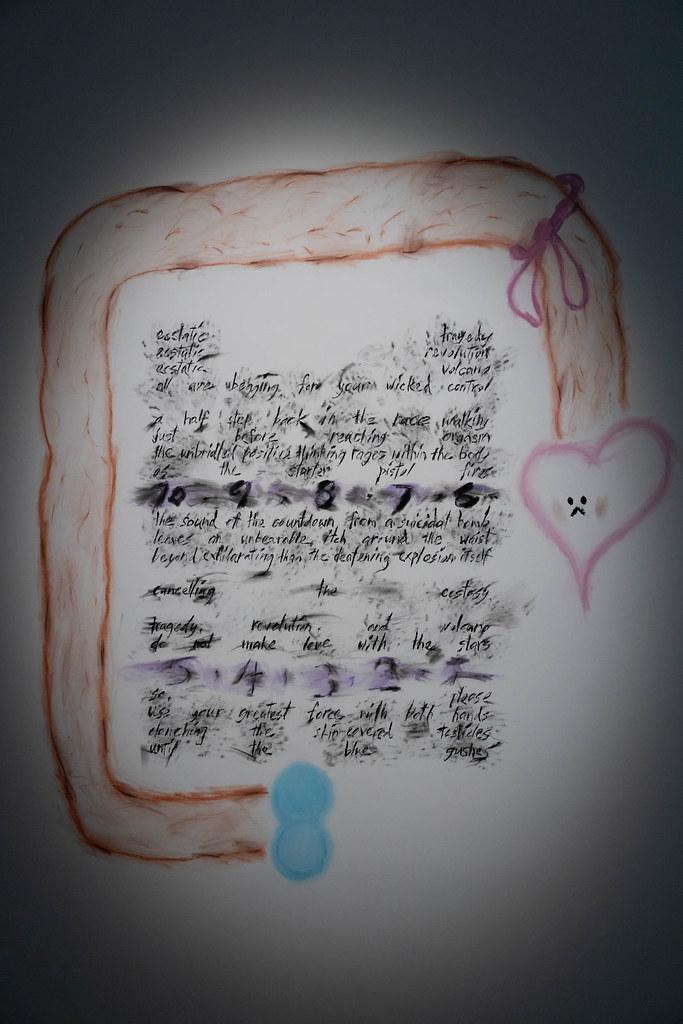 ecstatic tragedy
ecstatic revolution
ecstatic volcano
all are ubegging for your wicked control
a half step back in the race walking
just before reaching orgasm
the unbridled positive thinking rages within the body
as the starter pistol fires
10 - 9 - 8 - 7 - 6
the sound of the countdown from a suicidal bomb
leaves an unbearable itch around the waist
beyond exhilarating than the deafening explosion itself
cancelling the ecstasy
tragedy, revolution, and volcano
do not make love with the stars
5 - 4 - 3 - 2 - 1
so, please
use your greatest forces with both hands
clenching the skin-covered testicles
until the blue gushes